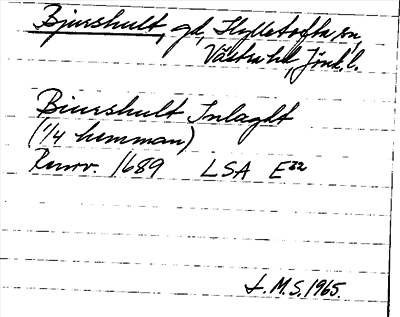 Bjurshult, gd, Hylletofta sn,
Västra hd, Jönk. l.
Biurshult Inlagdt
(1/4 hemman)
Renov. 1689 LSA E32
L. M. S. 1965.